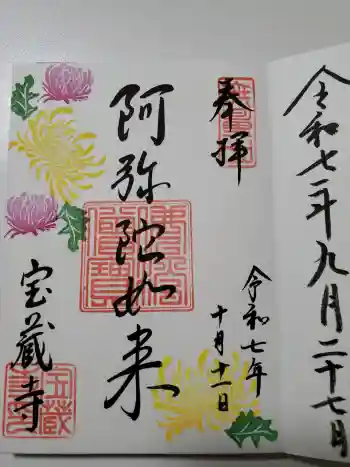 令和七年九月二十七日
奉拝
令和七年
十月十一日
阿弥陀如来
宝蔵寺
佛法僧寶